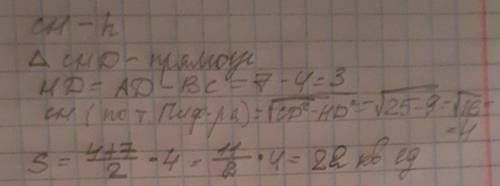 CH - h
△ CHD - прямоуг
HD = AD - BC = 7 - 4 = 3
CH (по т Пиф-ра) = √CD² - HD² = √25 - 9 = √16 = 4
S = 4+7/2 · 4 = 11/2 · 4 = 22 кв ед